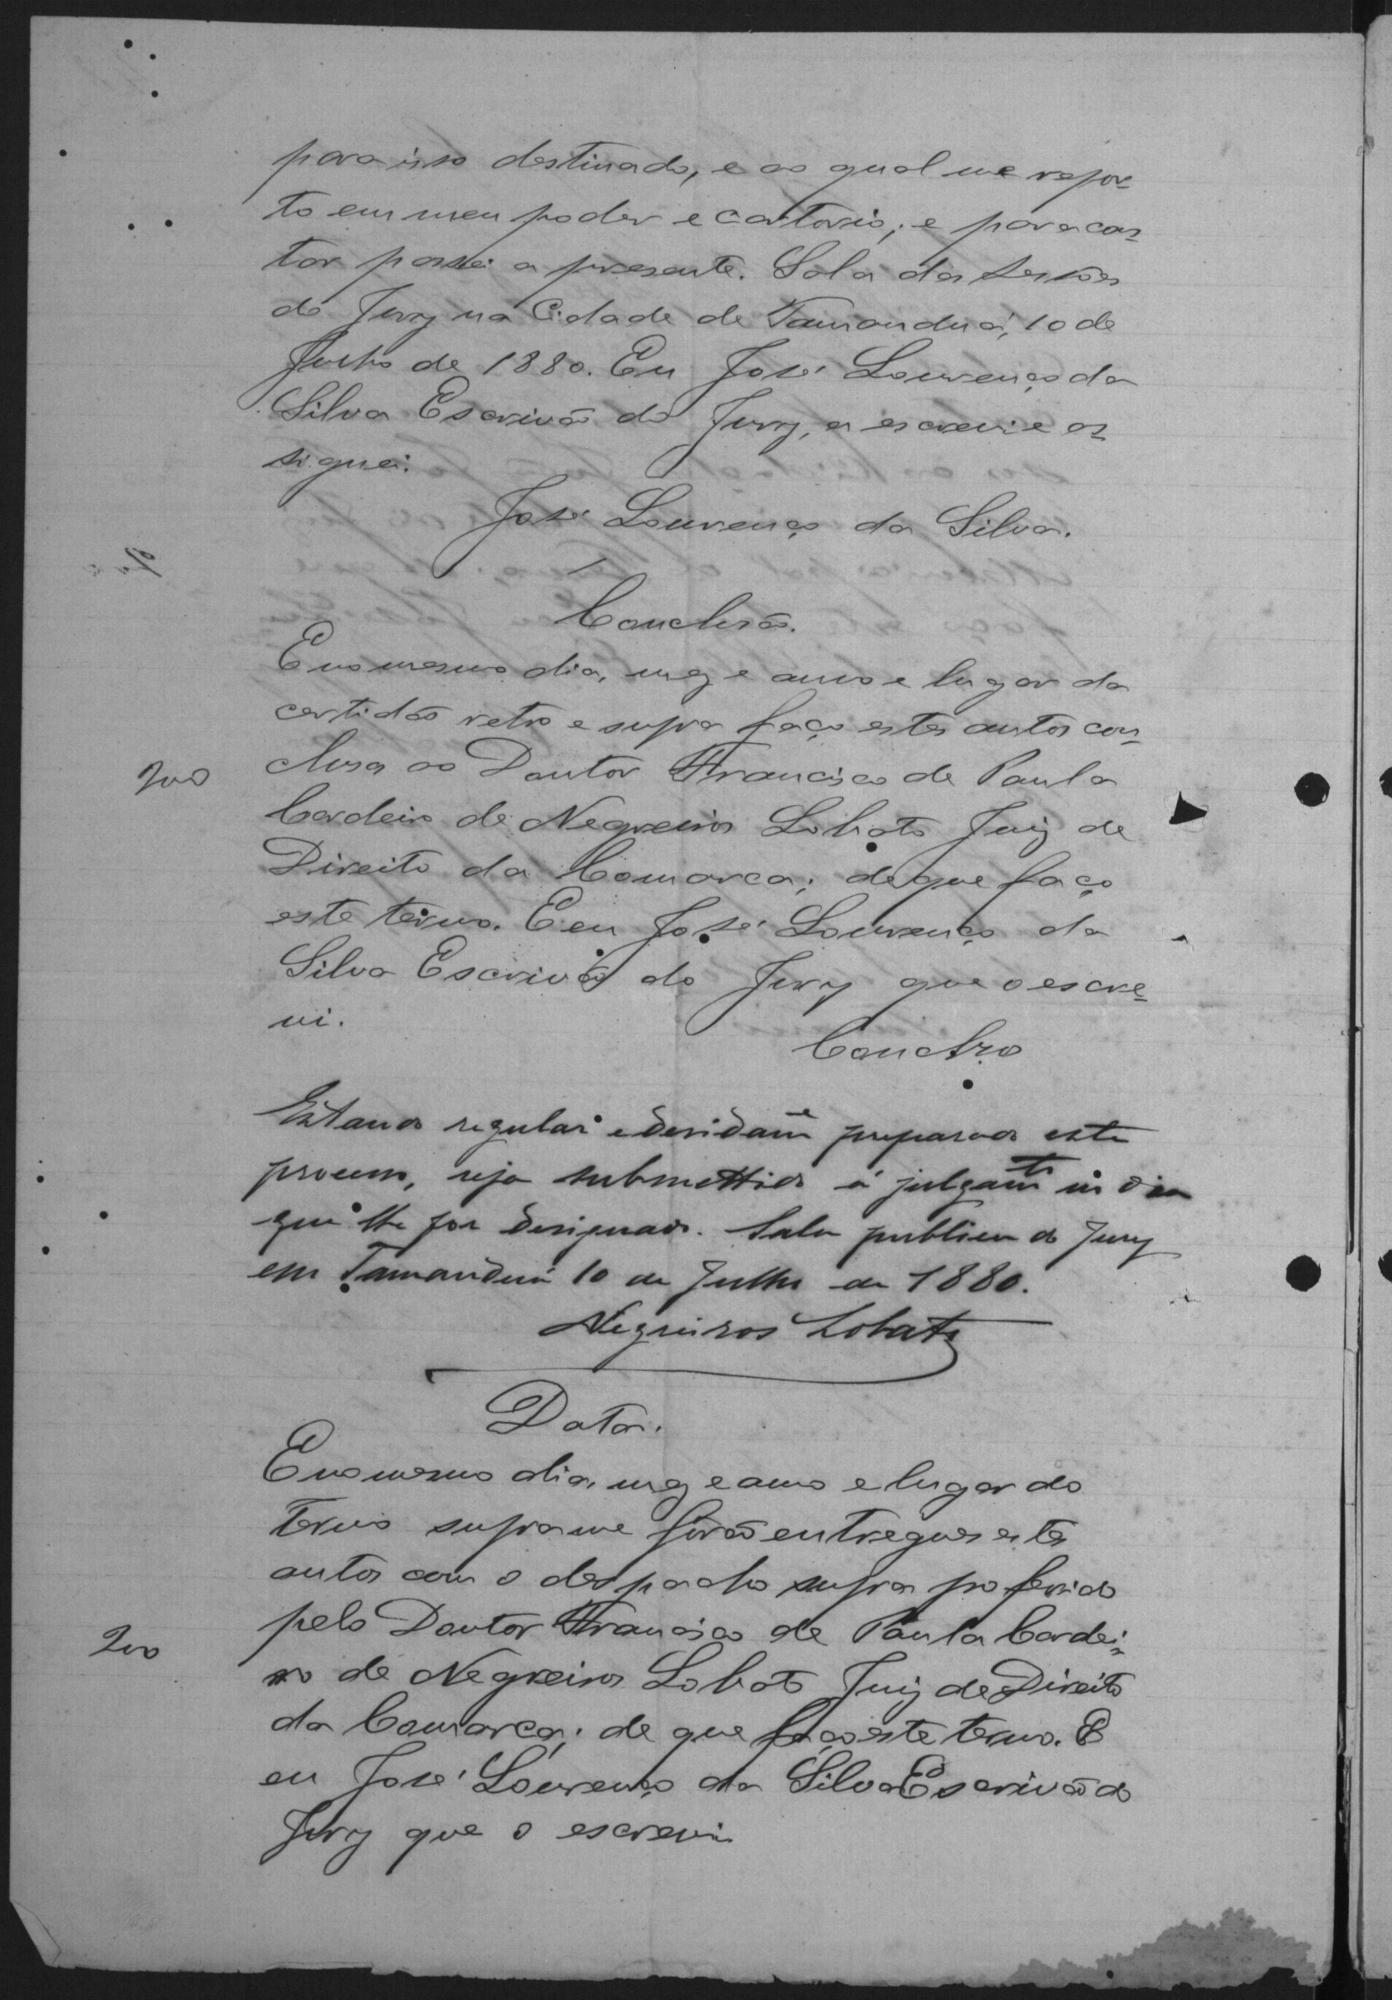 para isso destinado, e ao qual me repor-
to em meu poder e cartorio; e para cons-
tar passei a presente. Sala das Sessões
do Jury na Cidade de Tamanduá, 10 de
Julho de 1880. Eu José Lourenço da
Silva Escrivão do Jury, a escrevi e as-
signei.
José Lourenço da Silva.
Conclusão.
E no mesmo dia, mez e anno e lugar da
certidão retro e supra faço estes autos con-
clusos ao Doutor Francisco de Paula
200
Cordeiro de Negreiros Lobato Juiz de
Direito da Comarca; de que faço
este termo. E eu José Lourenço da
Silva Escrivão do Jury que o escre-
vi.
Conclso
Estando regular e devidamᵉ preparado este
processo, seja submettido á julgamᵗᵒ no dia
que lhe for designado. Sala publica do Jury
em Tamanduá 10 de Julho de 1880.
Negreiros Lobato
Data.
E no mesmo dia, mez e anno e lugar do
termo supra me forão entregues estes
autos com o despacho supra proferido
pelo Doutor Francisco de Paula Cordei-
200
ro de Negreiros Lobato Juiz de Direito
da Comarca; de que faço este termo. E
eu José Lourenço da Silva Escrivão do
Jury que o escrevi